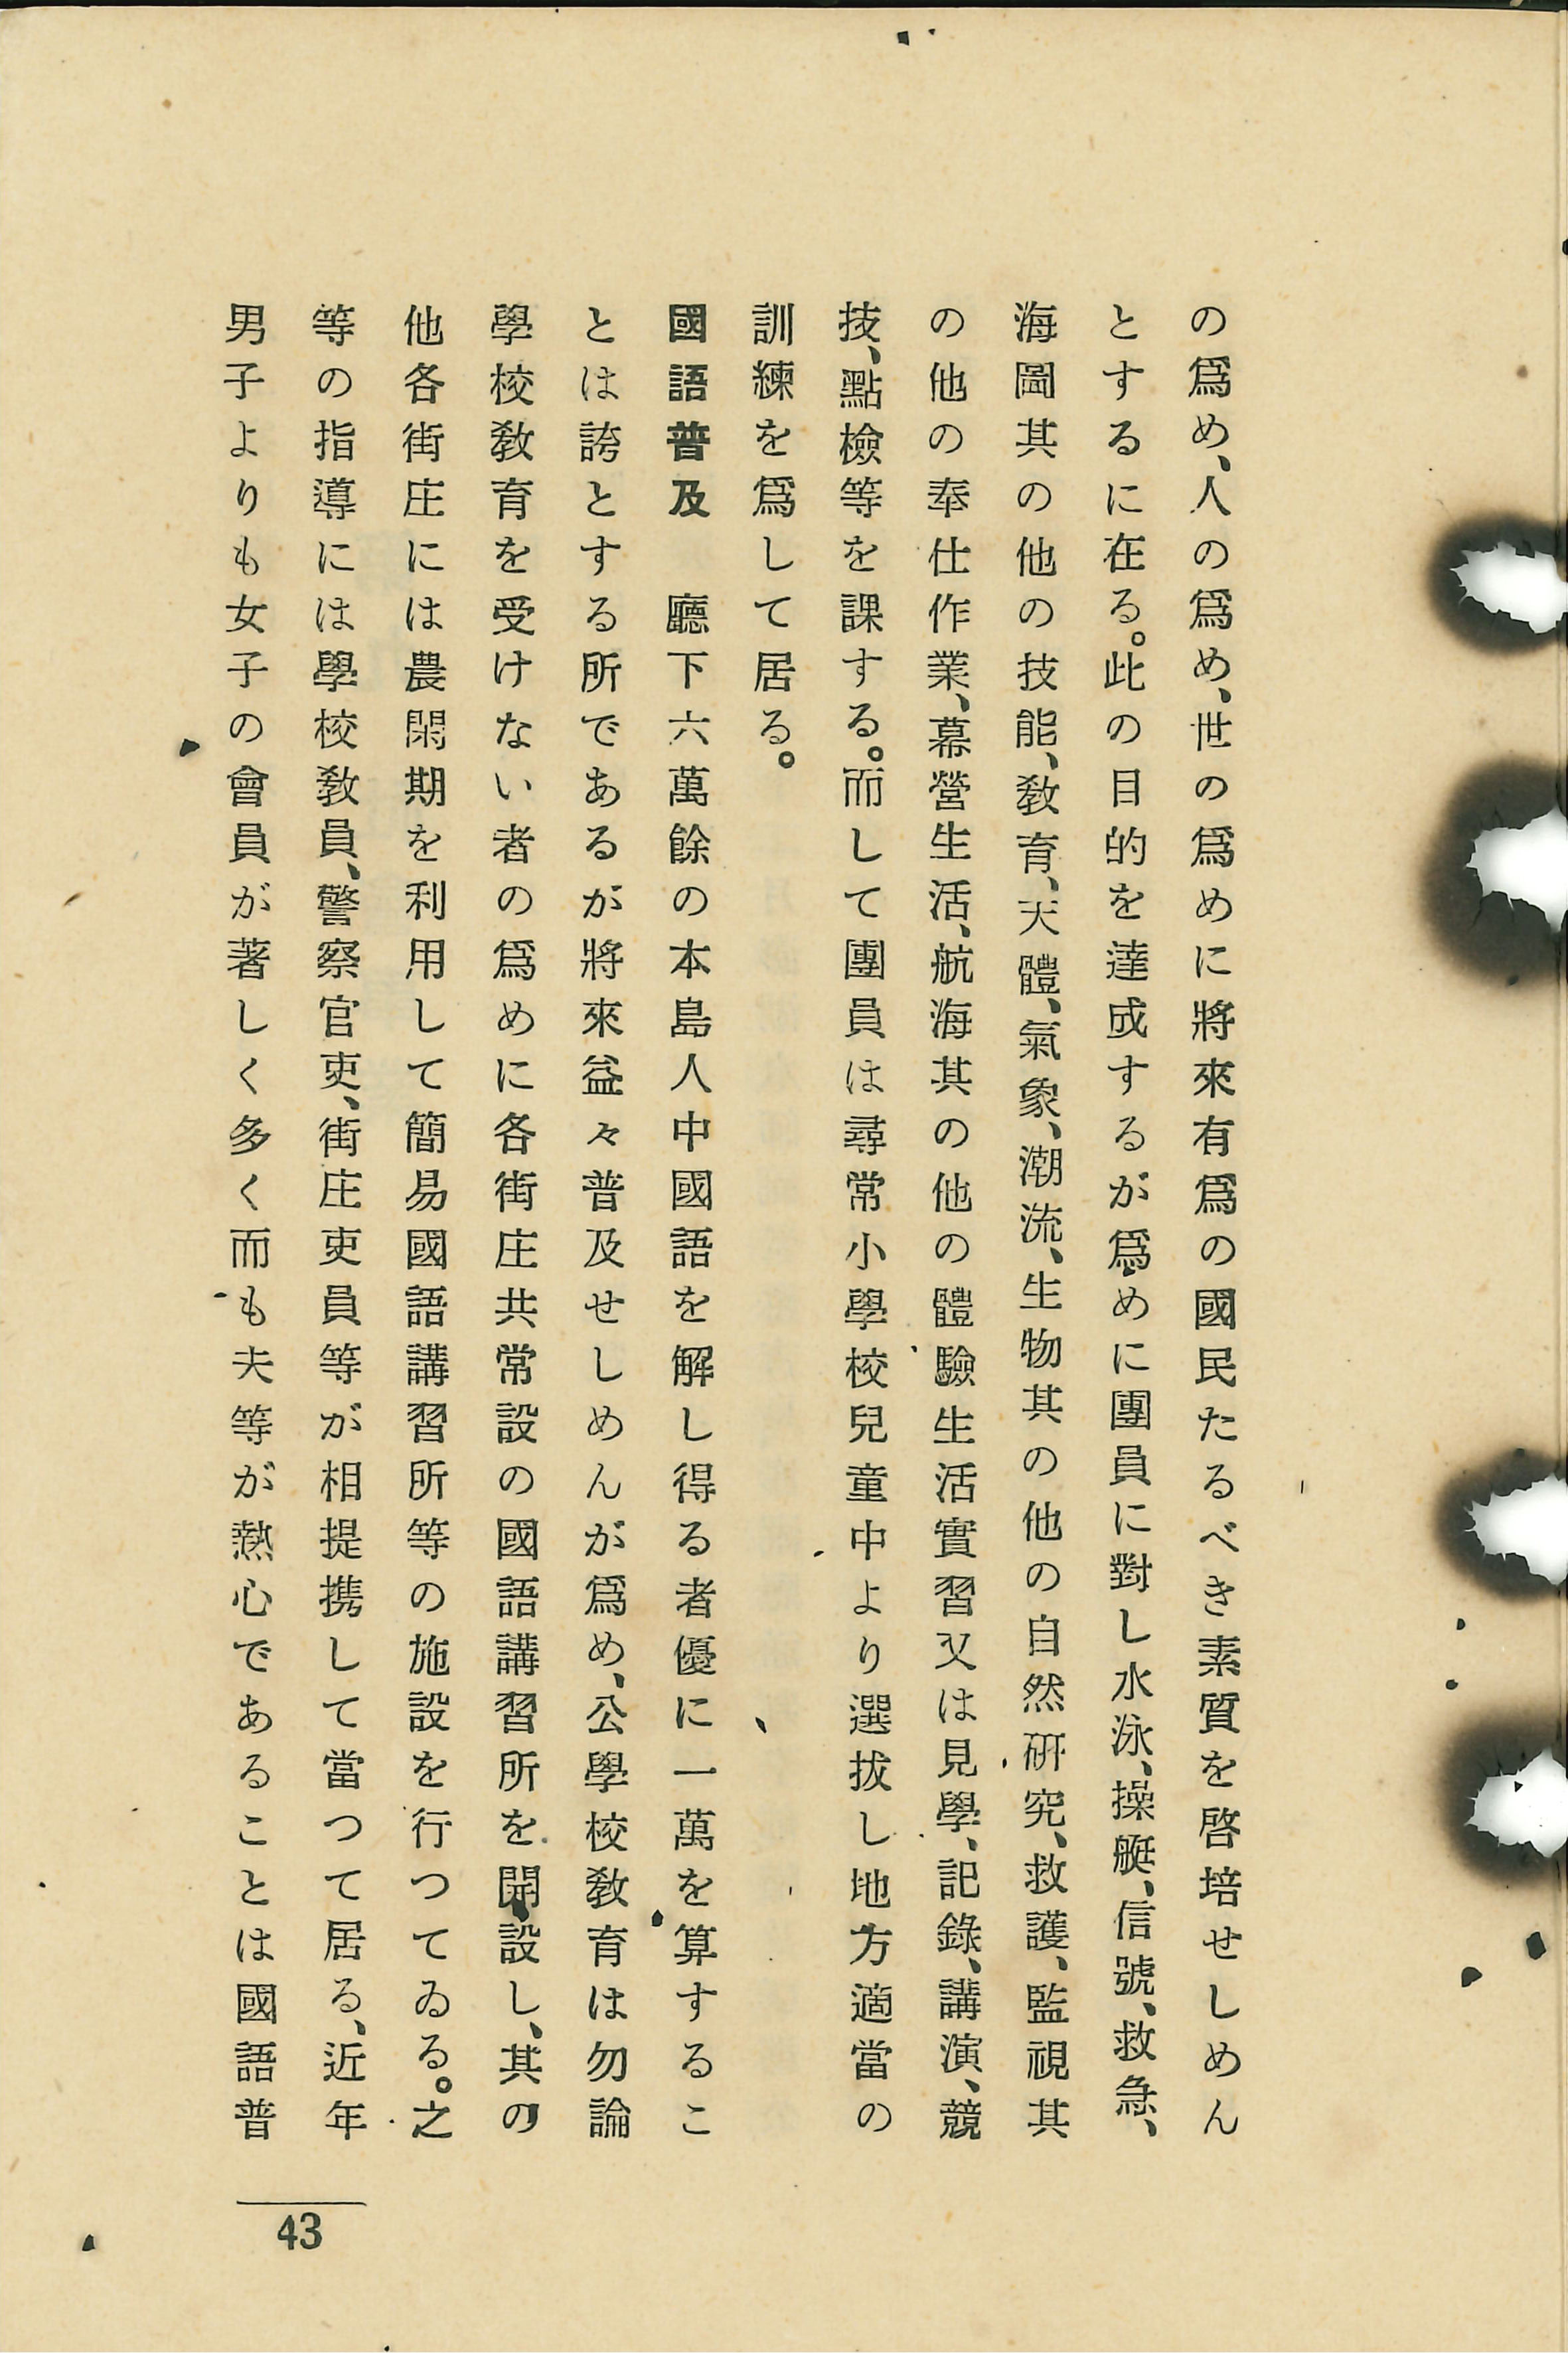 の爲め、人の爲め、世の爲めに將來有爲の國民たるべき素質を啓培せしめん
とするに在る。此の目的を達成するが爲めに團員に對し水泳、操艇、信號、救急、
海圖其の他の技能、敎育、天體、氣象、潮流、生物其の他の自然硏究、救護、監視其
の他の奉仕作業、幕營生活、航海其の他の體驗生活實習又は見學、記錄、講演、競
技、點檢等を課する。而して團員は尋常小學校兒童中より選拔し地方適當の
訓練を爲して居る。
國語普及　廳下六萬餘の本島人中國語を解し得る者優に一萬を算するこ
とは誇とする所であるが將來益々普及せしめんが爲め、公學校敎育は勿論
學校敎育を受けない者の爲めに各街庄共常設の國語講習所を開設し、其の
他各街庄には農閑期を利用して簡易國語講習所等の施設を行つてゐる。之
等の指導には學校敎員、警察官吏、街庄吏員等が相提携して當つて居る、近年
男子よりも女子の會員が著しく多く而も夫等が熱心であることは國語普
43